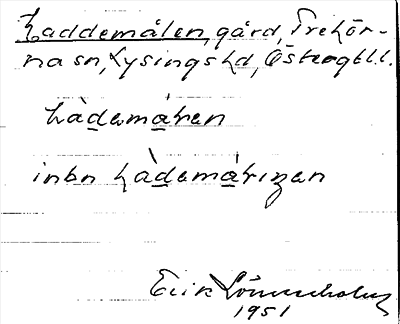 Laddemålen, gård, Trehör-
na sn, Lysings hd, Östergötl.
Làdemåren
inbn Làdemåriŋen
Erik Lönnerholm
1951